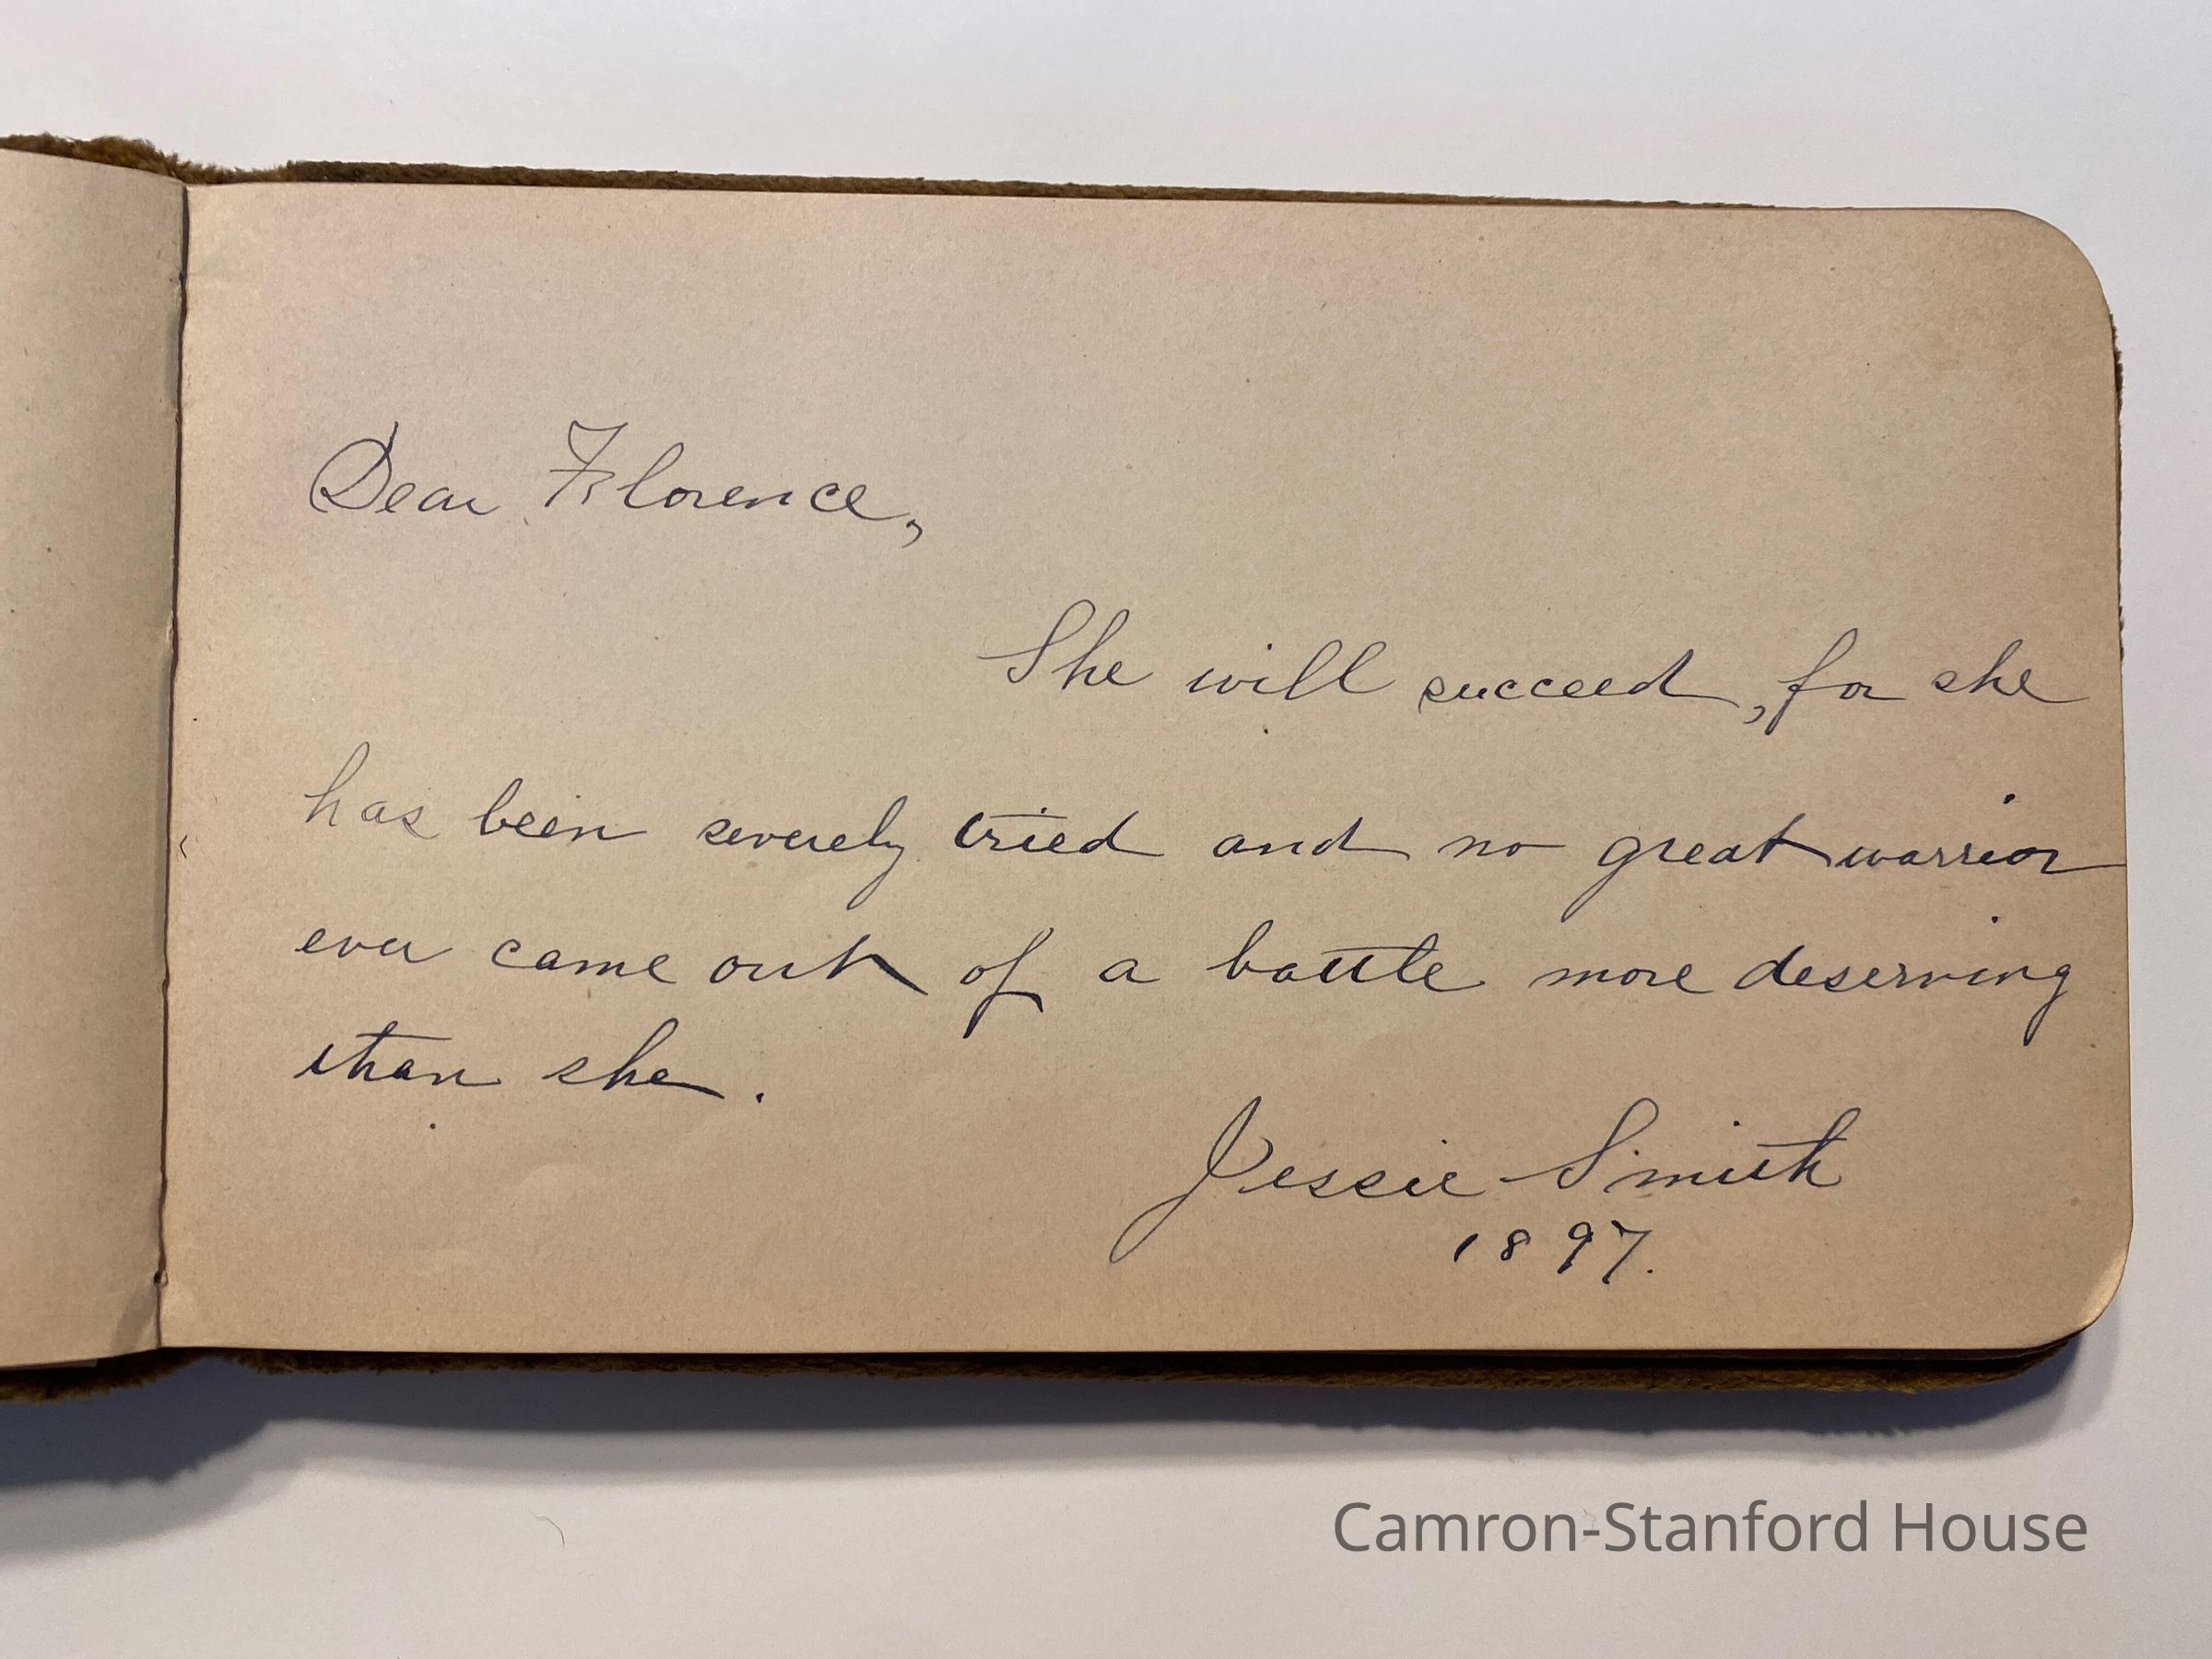 Dear Florence,
She will succeed, for she
has been severely tried and no great warrior
ever came out of a battle more deserving
than she.
Jessie Smith
1897.
Camron-Stanford House